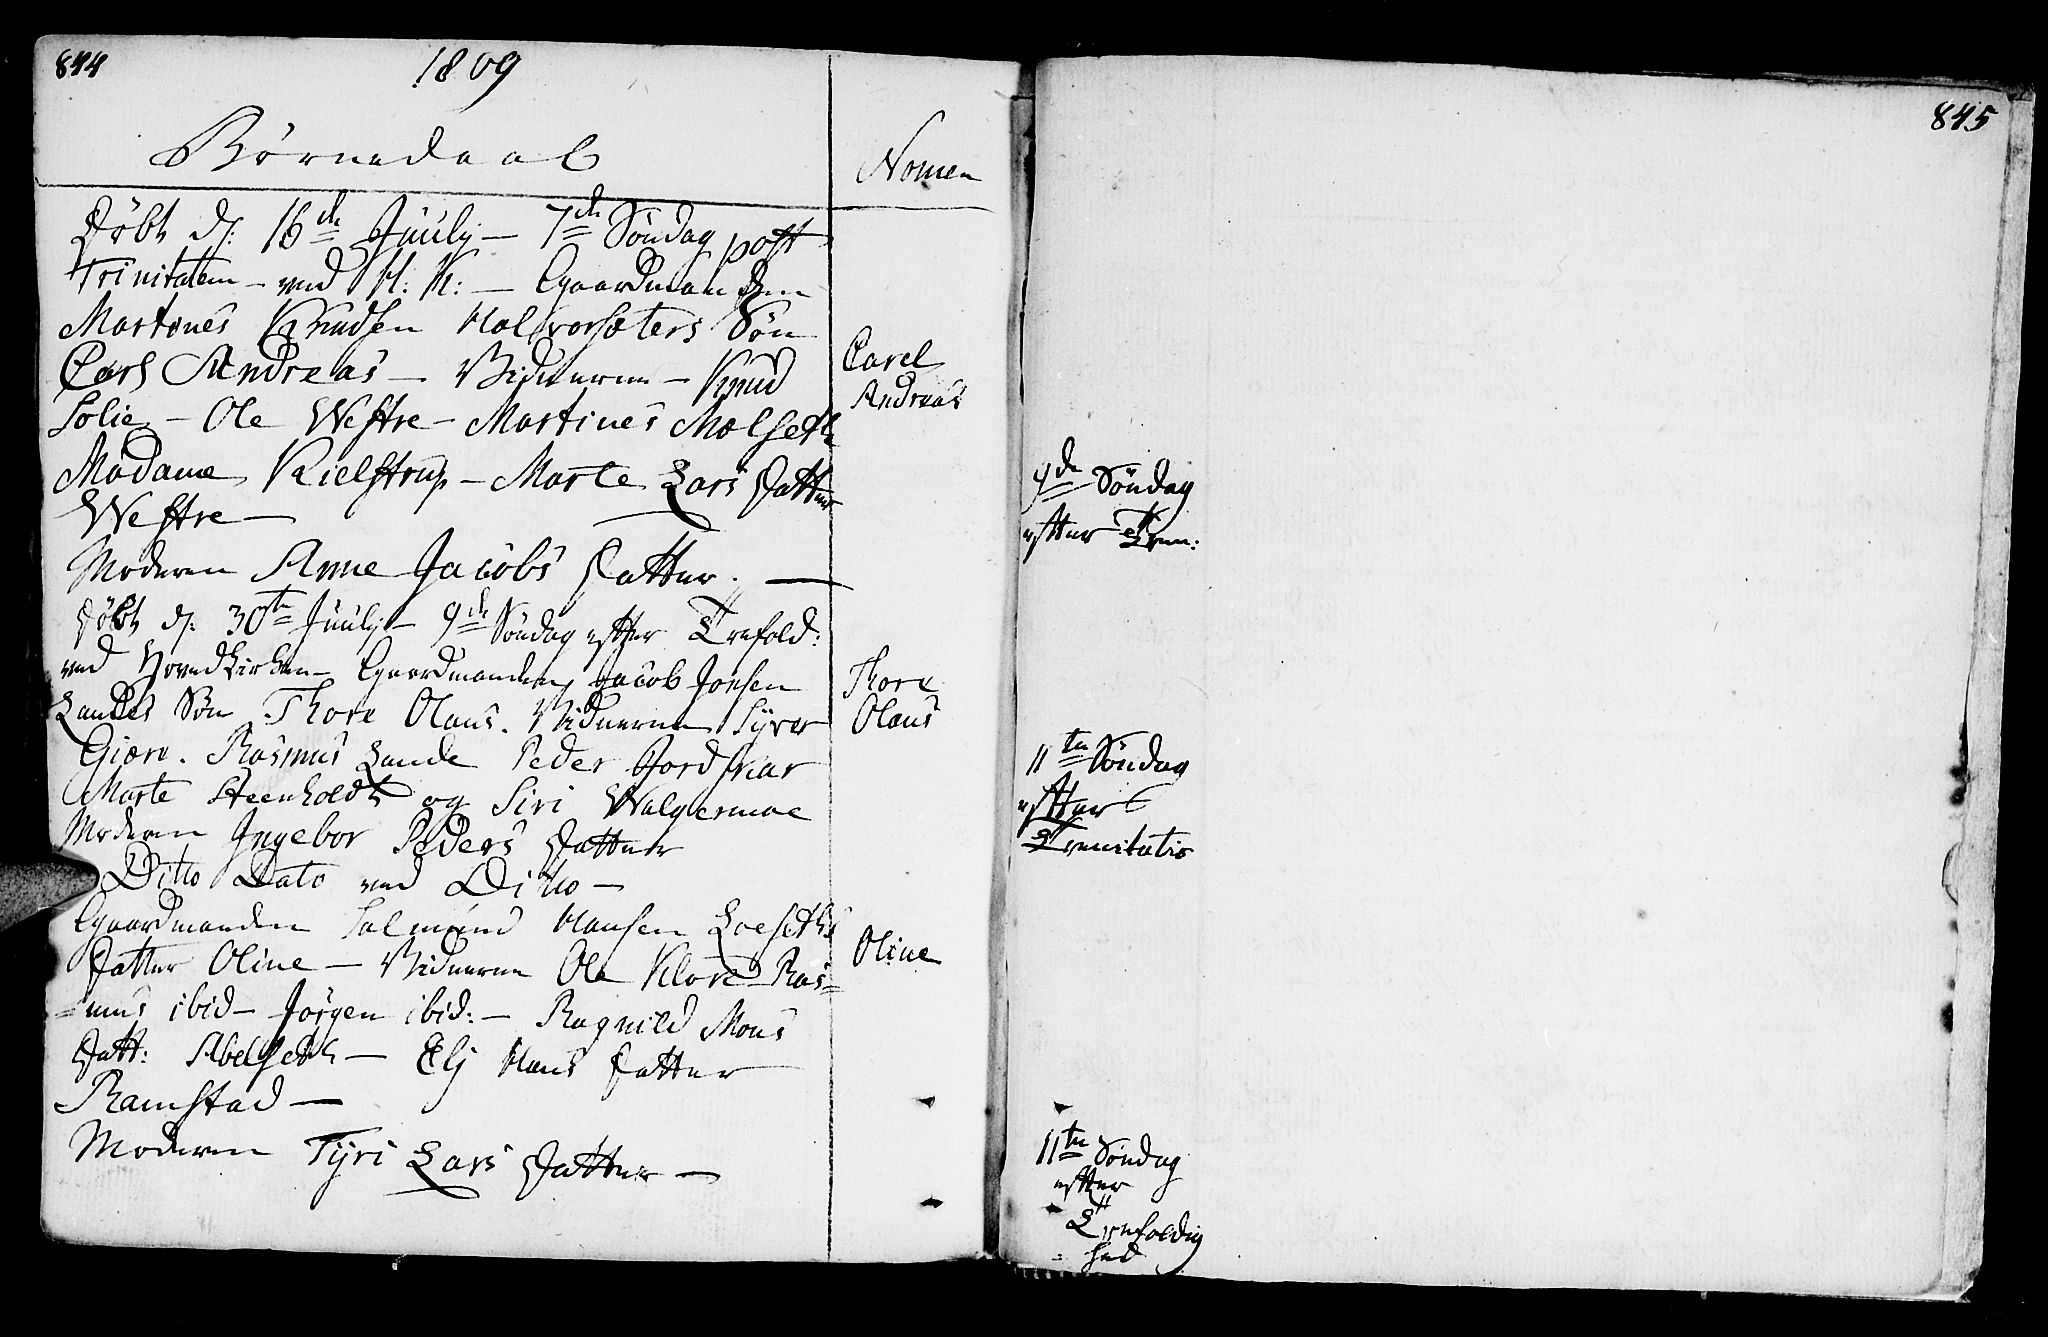 844
1809
Børnedaab
Nomen
Døbt d: 16de Juuly – 7de Søndag post
Trinitatem – ved H: K: – Gaardmanden
Martines Knudsen Halvorsæters Søn
Carl Andreas – Vidnerne – Knud
Solie – Ole Westre – Martines Mælseth
Madame Kielstrup – Marte Lars Datter
Westre –
Moderen Anne Jacobs Datter. –
Carel
Andreas
Døbt d: 30te Juuly – 9de Søndag efter Trefold:
ved Hovedkirken – Gaardmanden Jacob Jonsen
Landes Søn Thore Olaus. Vidnerne Syver
Giære. Rasmus Lande Peder Jordskar
Marte Steenholdt og Siri Walgermoe
Moderen Ingebor Peders Datter
Thore
Olaus
Ditto Dato ved Ditto –
Gaardmanden Salmund Hansen Loeseths
Datter Oline – Vidnerne Ole Klove Ras=
=mus ibid – Jørgen ibid: – Ragnild Mons
Datt: Abelseth – Elj Hans Datter
Ramstad –
Moderen Tyri Lars Datter –
Oline
845
9de Søndag
efter Tren:
11te Søndag
efter
Trenitatis
11te Søndag
efter
Trefoldig
= hed